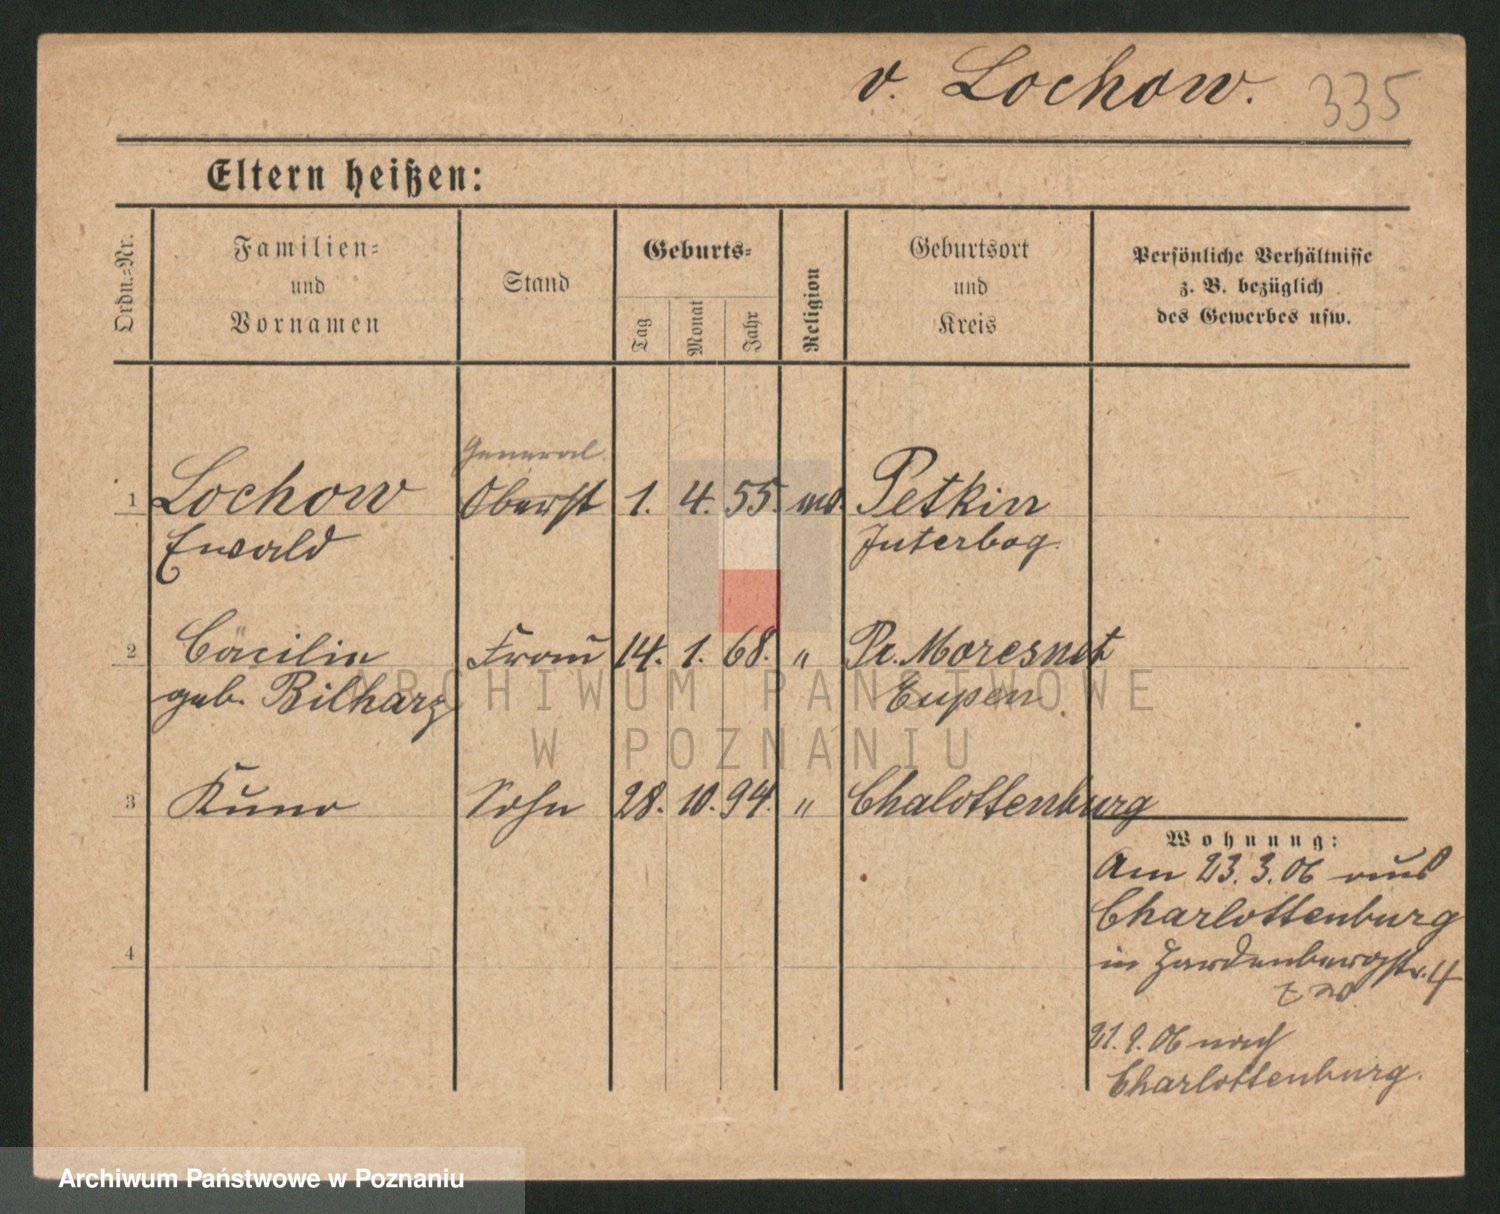 v. Lochow. 335
Eltern heißen:
Ordn.-Nr.
Familien-
und
Vornamen
Stand
Geburts-
Tag
Monat
Jahr
Religion
Geburtsort
und
Kreis
Persönliche Verhältnisse
z. B. bezüglich
des Gewerbes usw.
General
1 Lochow Oberst 1. 4. 55. ev. Petkin
Ewald Juterbog.
2 Cäcilie Frau 14. 1. 68. " Pr. Moresnet
geb. Bilharz Eupen.
3 Kuno Sohn 28. 10. 94. " Chalottenburg
Wohnung:
Am 23. 3. 06 aus
Charlottenburg
4
in Hardenbergstr. 4
21. 9. 06 nach
Charlottenburg.
ARCHIWUM PAŃSTWOWE
W POZNANIU
Archiwum Państwowe w Poznaniu